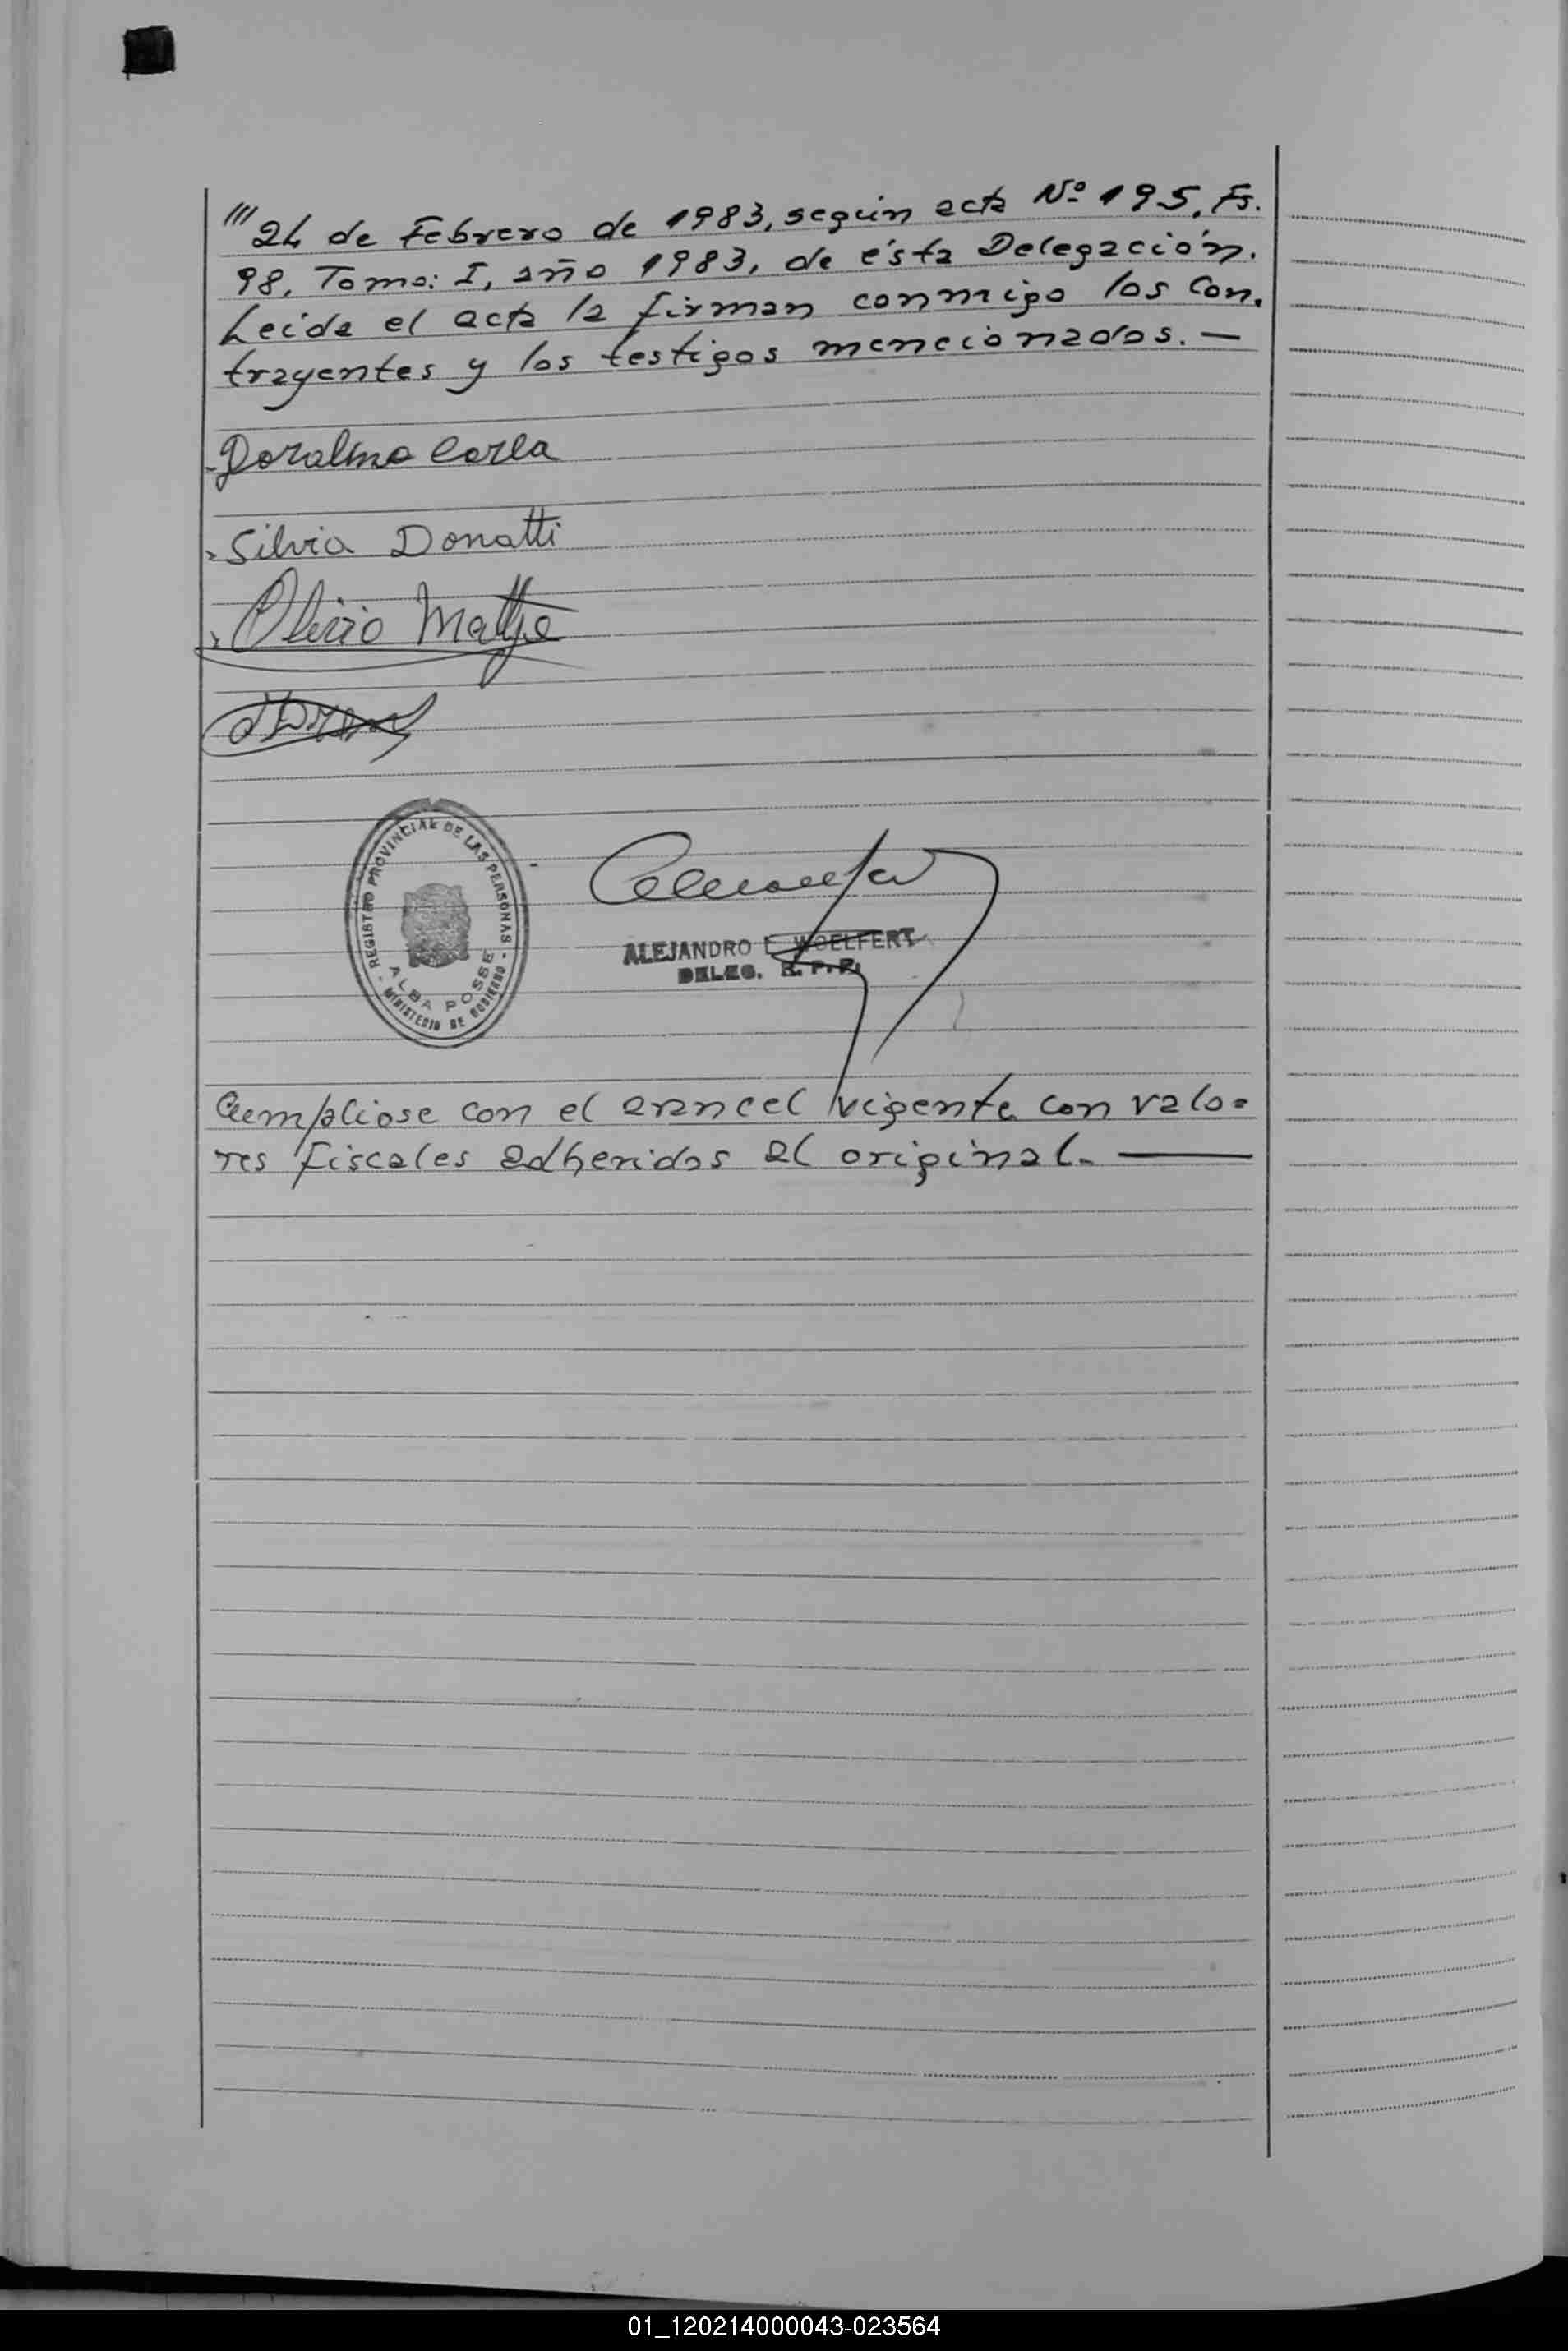 /// 24 de Febrero de 1983, según acta Nº 195, Fs.
98, Tomo: I, año 1983, de ésta Delegación.
Leida el acta la firman conmigo los Con.
trayentes y los testigos mencionados. —
Silvia Donatti
REGISTRO PROVINCIAL DE LAS PERSONAS
ALBA POSSE
MINISTERIO DE GOBIERNO
ALEJANDRO WOELFERT
DELEG. R. P. P.
Cumpliose con el arancel vigente con valo=
res fiscales adheridos al original. —
01_120214000043-023564